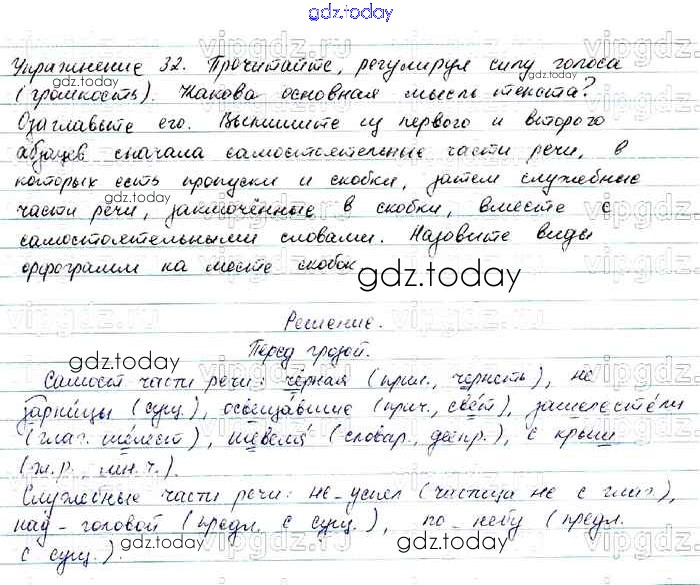 gdz.today
Упражнение 32. Прочитайте, регулируя силу голоса
gdz.today
gdz.today
(громкость). Какова основная мысль текста?
Озаглавьте его. Выпишите из первого и второго
абзацев сначала самостоятельные части речи, в
которых есть пропуски и скобки, затем служебные
gdz.today
gdz.today
части речи, заключённые в скобки, вместе с
самостоятельными словами. Назовите виды
орфограмм на месте скобок
gdz.today
Решение.
gdz.today
Перед грозой.
Самост части речи: чёрная (прил., чернеть), не
зарницы (сущ.), освещавшие (прич., свет), зашелестели
(глаг. шелест), шевеля (словар., деепр.), с крыш
gdz.today
(ж.р., мн.ч.).
Служебные части речи: не успел (частица не с глаг.),
над головой (предл. с сущ.), по небу (предл.
gdz.today
gdz.today
с сущ.).